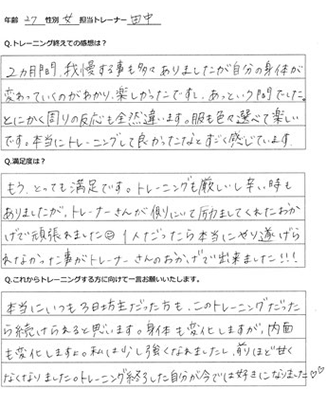 年齢 27 性別 女 担当トレーナー 田中
Q.トレーニング終えての感想は？
2ヵ月間、我慢する事も多々ありましたが自分の身体が
変わっていくのがわかり、楽しかったですし、あっという間でした。
とにかく周りの反応も全然違います。服も色々選べて楽しい
です。本当にトレーニングして良かったなとすごく感じています。
Q.満足度は？
もう、とっても満足です。トレーニングも厳しいし辛い時も
ありましたが、トレーナーさんが側りにいて励ましてくれたおか
げで頑張れました 1人だったら本当にやり遂げら
れなかった事がトレーナーさんのおかげで出来ました!!!
Q.これからトレーニングする方に向けて一言お願いいたします。
本当にいつも3日坊主だった方も、このトレーニングだった
ら続けられると思います。身体も変化しますが、内面
も変化しますよ。私は少し強くなれましたし、前ほど甘く
なくなりました。トレーニング終了した自分が今では好きになりました♡♡